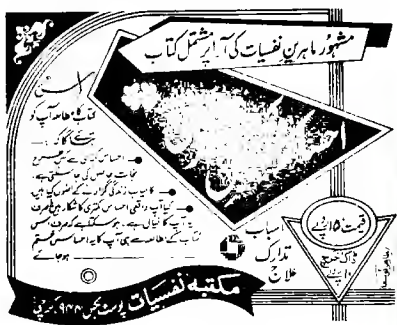 مشہور ماہرین نفسیات کی آرا پر مشتمل کتاب
اس
کتاب کا مطالعہ آپ کو
بتائے گا کہ :—
احساس کمتری سے کس طرح
نجات حاصل کی جا سکتی ہے
کامیاب زندگی گزارنے کے اصول کیا ہیں
کیا آپ واقعی احساس کمتری کا شکار ہیں یا صرف
یہ آپ کا خیال ہے۔ ہو سکتا ہے کہ صرف اس
کتاب کے مطالعہ سے ہی آپ کا یہ احساس ختم
ہو جائے
اسباب
تدارک
علاج
قیمت ۱۵ روپے
ڈاک خرچ
مکتبہ نفسیات پوسٹ بکس ۹۴۴ کراچی